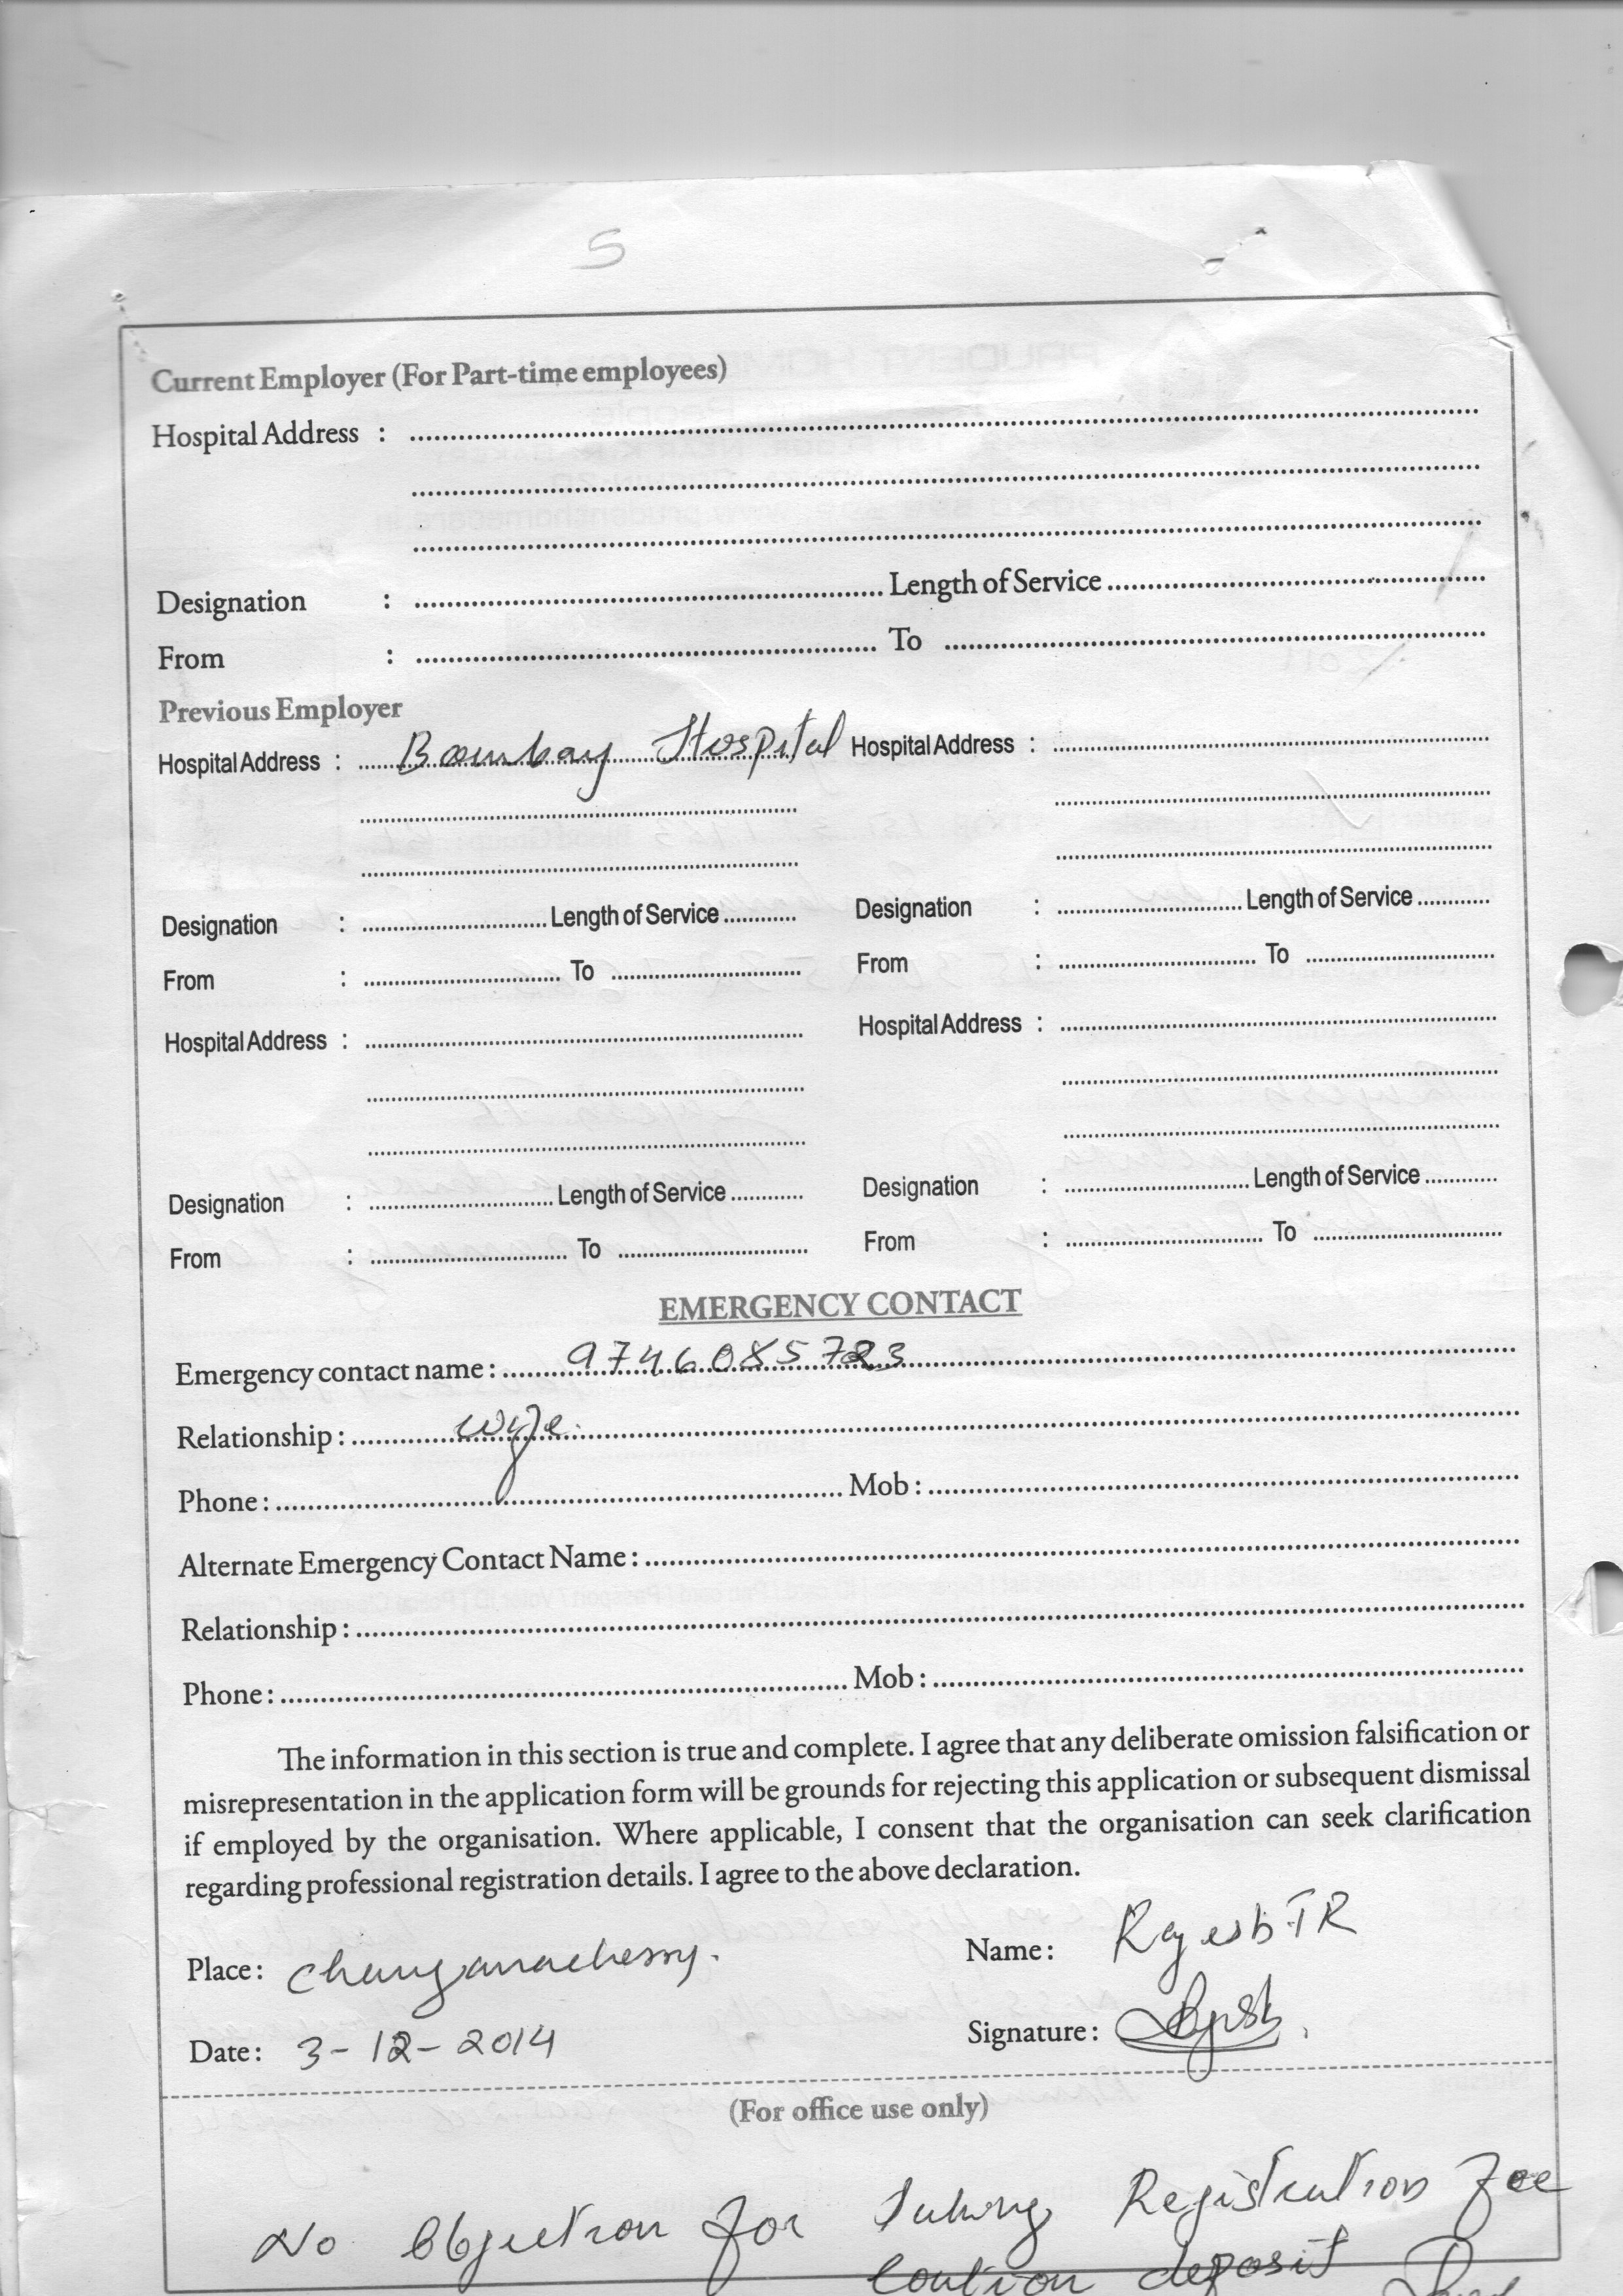 5
Current Employer (For Part-time employees)
Hospital Address :
Designation : Length of Service
From : To
Previous Employer
Hospital Address : Boumbay Hospital Hospital Address :
Designation : Length of Service Designation : Length of Service
From : To From : To
Hospital Address : Hospital Address :
Designation : Length of Service Designation : Length of Service
From : To From : To
EMERGENCY CONTACT
Emergency contact name : 9746085723
Relationship : wife.
Phone : Mob :
Alternate Emergency Contact Name :
Relationship :
Phone : Mob :
The information in this section is true and complete. I agree that any deliberate omission falsification or
misrepresentation in the application form will be grounds for rejecting this application or subsequent dismissal
if employed by the organisation. Where applicable, I consent that the organisation can seek clarification
regarding professional registration details. I agree to the above declaration.
Place : Changanacherry. Name : Rajesh T R
Date : 3-12-2014 Signature :
(For office use only)
No Objection for Taking Registration Fee
Caution deposit